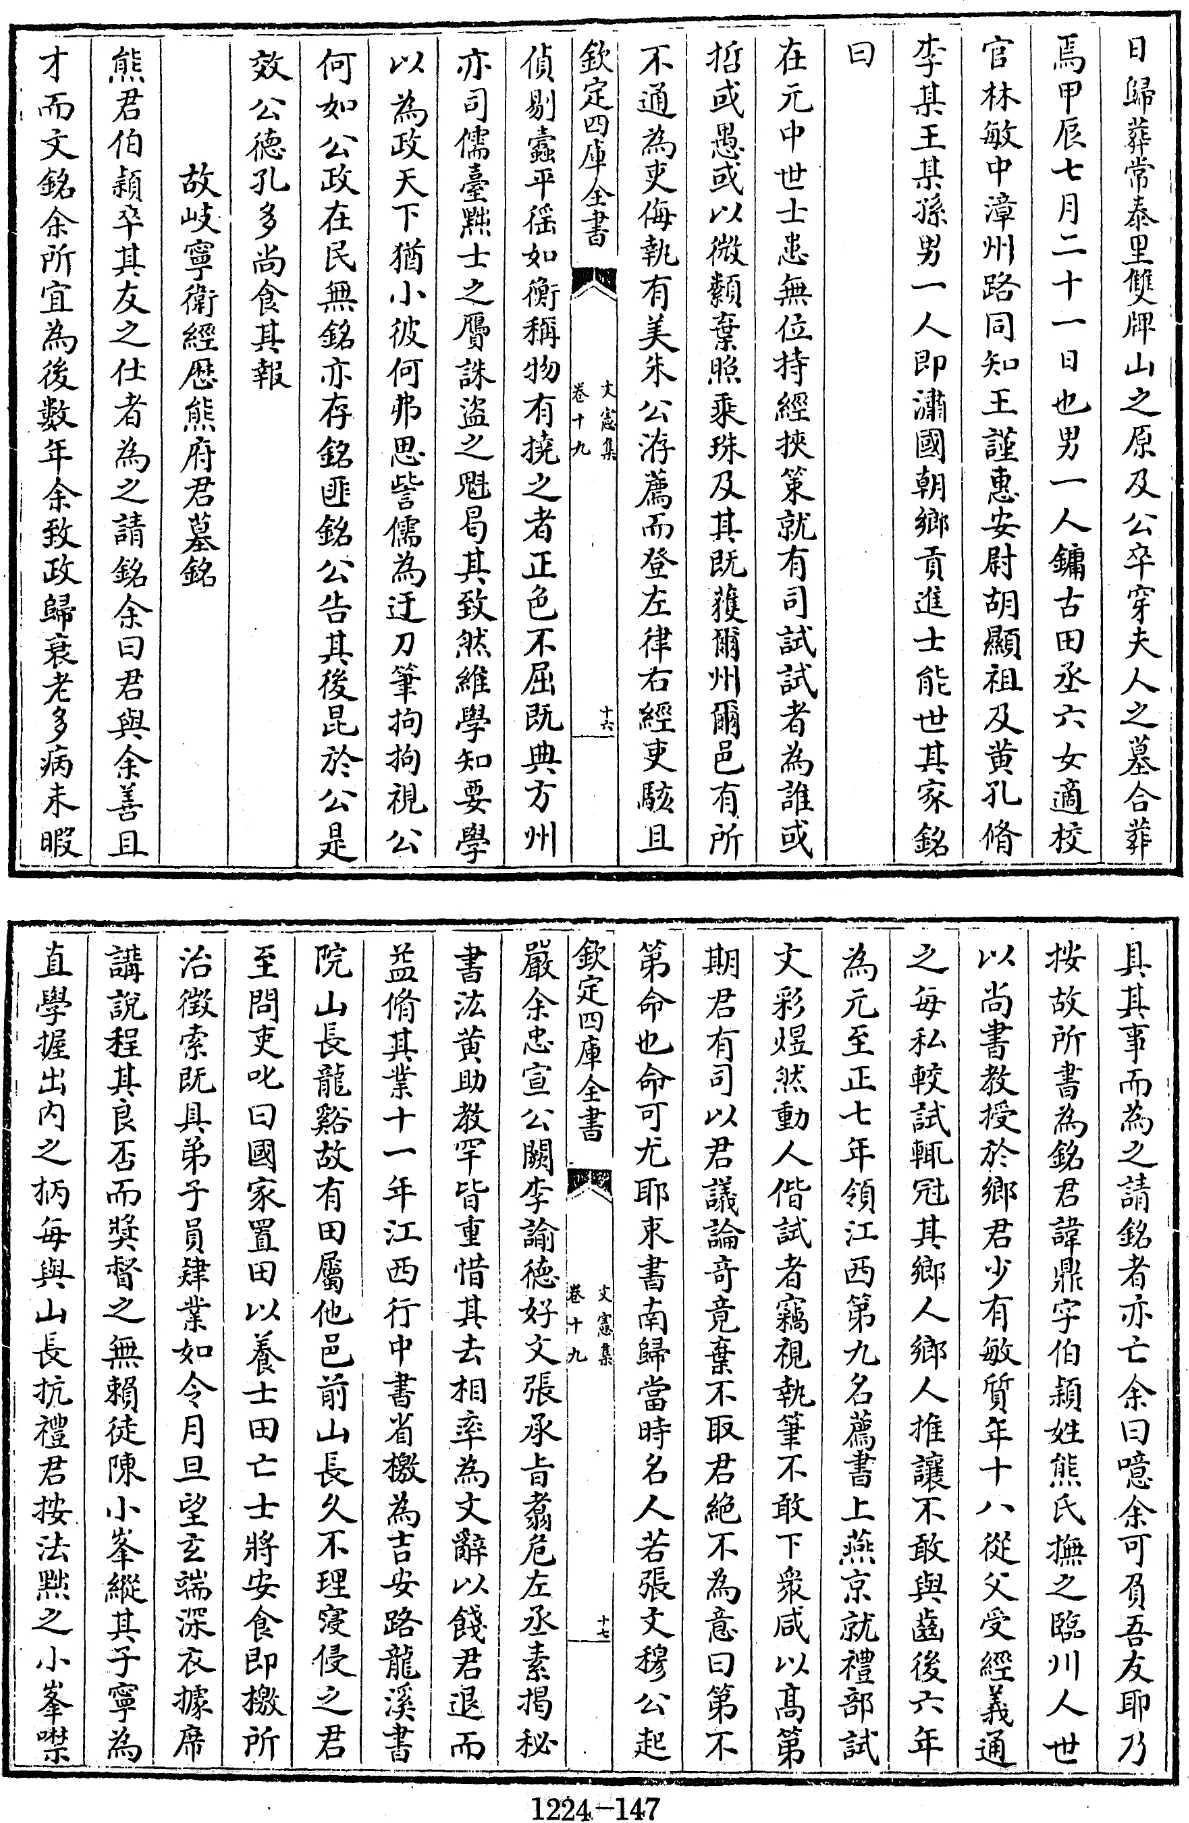 日歸葬常泰里雙牌山之原及公卒穿夫人之墓合葬
焉甲辰七月二十一日也男一人鏞古田丞六女適校
官林敏中漳州路同知王謹惠安尉胡顯祖及黄孔脩
李某王某孫男一人即潚國朝鄉貢進士能世其家銘
曰
在元中世士患無位持經挾策就有司試試者為誰或
哲或愚或以微纇棄照乘珠及其既獲爾州爾邑有所
不通為吏侮執有美朱公洊薦而登左律右經吏駭且
欽定四庫全書
文憲集
卷十九
十六
偵剔蠹平徭如衡稱物有撓之者正色不屈既典方州
亦司儒臺黜士之贗誅盜之魁曷其致然維學知要學
以為政天下猶小彼何弗思訾儒為迂刀筆拘拘視公
何如公政在民無銘亦存銘匪銘公告其後昆於公是
效公德孔多尚食其報
故岐寧衛經歴熊府君墓銘
熊君伯潁卒其友之仕者為之請銘余曰君與余善且
才而文銘余所宜為後数年余致政歸衰老多病未暇
具其事而為之請銘者亦亡余曰噫余可負吾友耶乃
按故所書為銘君諱鼎字伯潁姓熊氏撫之臨川人世
以尚書教授於鄉君少有敏質年十八從父受經義通
之每私較試輒冠其鄉人鄉人推讓不敢與齒後六年
為元至正七年領江西第九名薦書上燕京就禮部試
文彩煜然動人偕試者竊視執筆不敢下衆咸以髙第
期君有司以君議論奇竟棄不取君絶不為意曰第不
第命也命可尤耶束書南歸當時名人若張文穆公起
欽定四庫全書
文憲集
卷十九
十七
嚴余忠宣公闕李諭德好文張承㫖翥危左丞素揭秘
書汯黄助教罕皆重惜其去相率為文辭以餞君退而
益脩其業十一年江西行中書省檄為吉安路龍溪書
院山長龍谿故有田屬他邑前山長久不理寖侵之君
至問吏叱曰國家置田以養士田亡士將安食即檄所
治徵索既具弟子員肄業如令月旦望玄端深衣據席
講說程其良否而奬督之無賴徒陳小峯縱其子寧為
直學握出内之柄每與山長抗禮君按法黜之小峯噤
1224-147